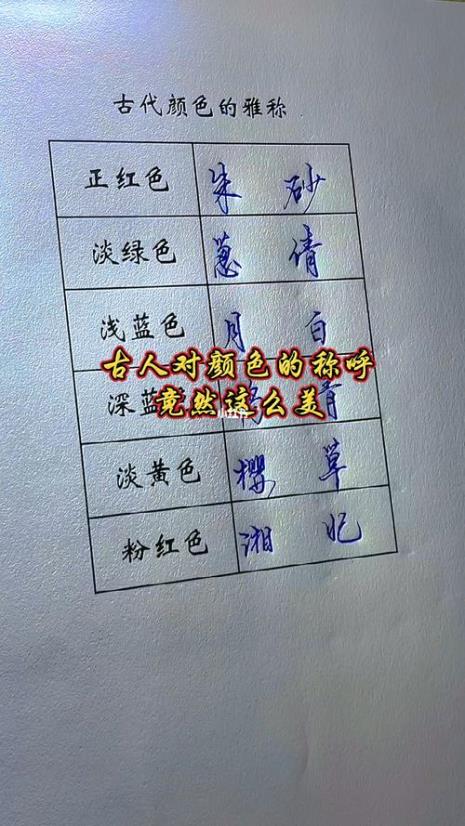 古代颜色的雅称
正红色 朱 砂
淡绿色 葱 倩
浅蓝色 月 白
古人对颜色的称呼
竟然这么美
深蓝 青
淡黄色 樱 草
粉红色 湘 妃